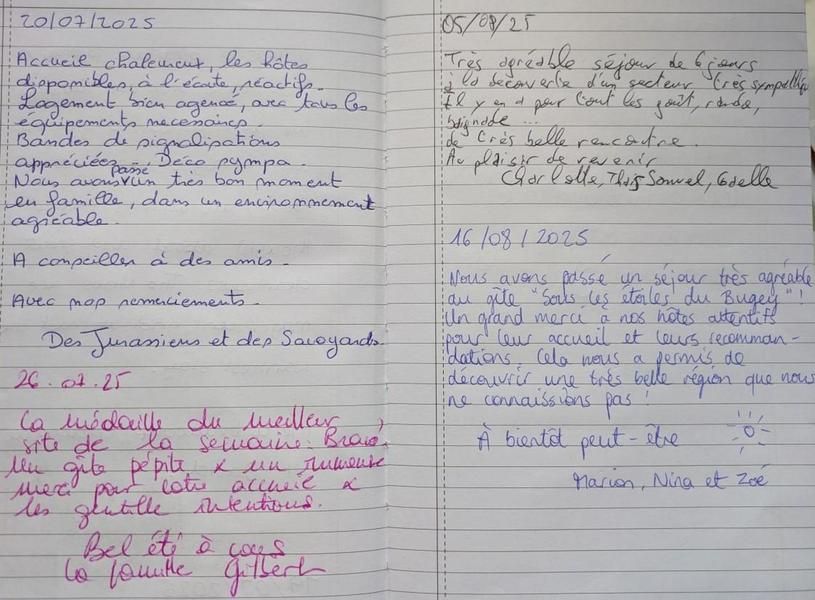 20/07/2025
Accueil chaleureux, les hôtes
disponibles, à l'écoute, réactifs.
Logement bien agencé, avec tous les
équipements necessaires.
Bandes de signalisations
appréciées. Déco sympa.
Nous avons passé un très bon moment
en famille, dans un environnement
agréable.
A conseiller à des amis.
Avec nos remerciements.
Des Jurassiens et des Savoyards.
26.07.25
La médaille du meilleur
site de la semaine. Bravo,
Un gîte pépite & un immense
merci pour votre accueil &
les gentille intentions.
Bel été à vous
La famille Gilbert
05/08/25
Très agréable séjour de 6 jours
à la découverte d'un secteur très sympathique
Il y en a pour tout les goût, rando,
baignade ...
de très belle rencontre.
Au plaisir de revenir
Charlotte, Gaelle
16/08/2025
Nous avons passé un séjour très agréable
au gîte "Sous les étoiles du Bugey" !
Un grand merci à nos hôtes attentifs
pour leur accueil et leurs recomman-
dations. Cela nous a permis de
découvrir une très belle région que nous
ne connaissions pas !
À bientôt peut-être
Marion, Nina et Zoé